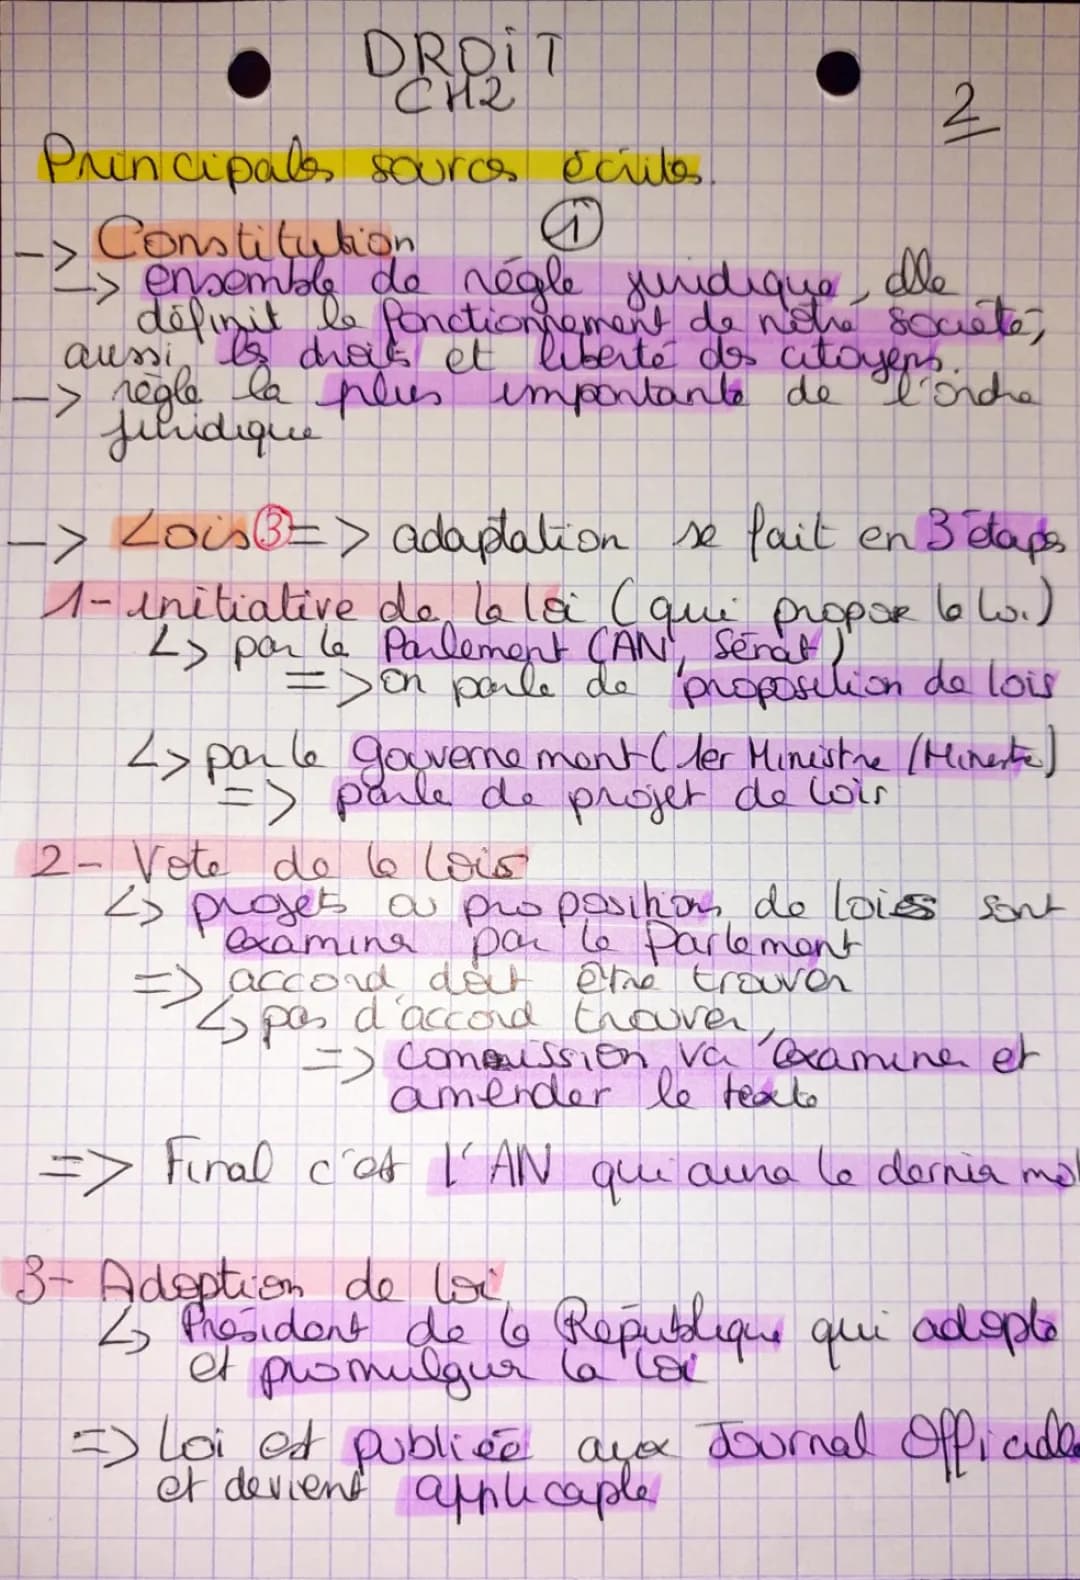 DROIT
CH2
2
Principales sources écrites.
-> Constitution ①
-> ensemble de régle juridique, elle
définit le fonctionnement de notre société,
aussi les droits et liberté des citoyens.
-> règle la plus importante de l'ordre
juridique
-> Lois ③ => adaptation se fait en 3 étapes
1- initiative de la loi (qui propose la loi)
↳ par le Parlement (AN, Sénat)
=> on parle de proposition de lois
↳ par le gouvernement (1er Ministre / Ministre)
=> parle de projet de lois
2- Vote de la lois
↳ projets ou propositions de loies sont
examiner par le Parlement
=> accord doit être trouver
↳ pas d'accord trouver,
=> commission va examiner et
amender le texte
=> Final c'est l'AN qui aura le dernier mot
3- Adoption de loi
↳ Président de la République qui adopte
et promulguer la loi
=> Loi est publiée aux Journal Officielle
et devient applicaple